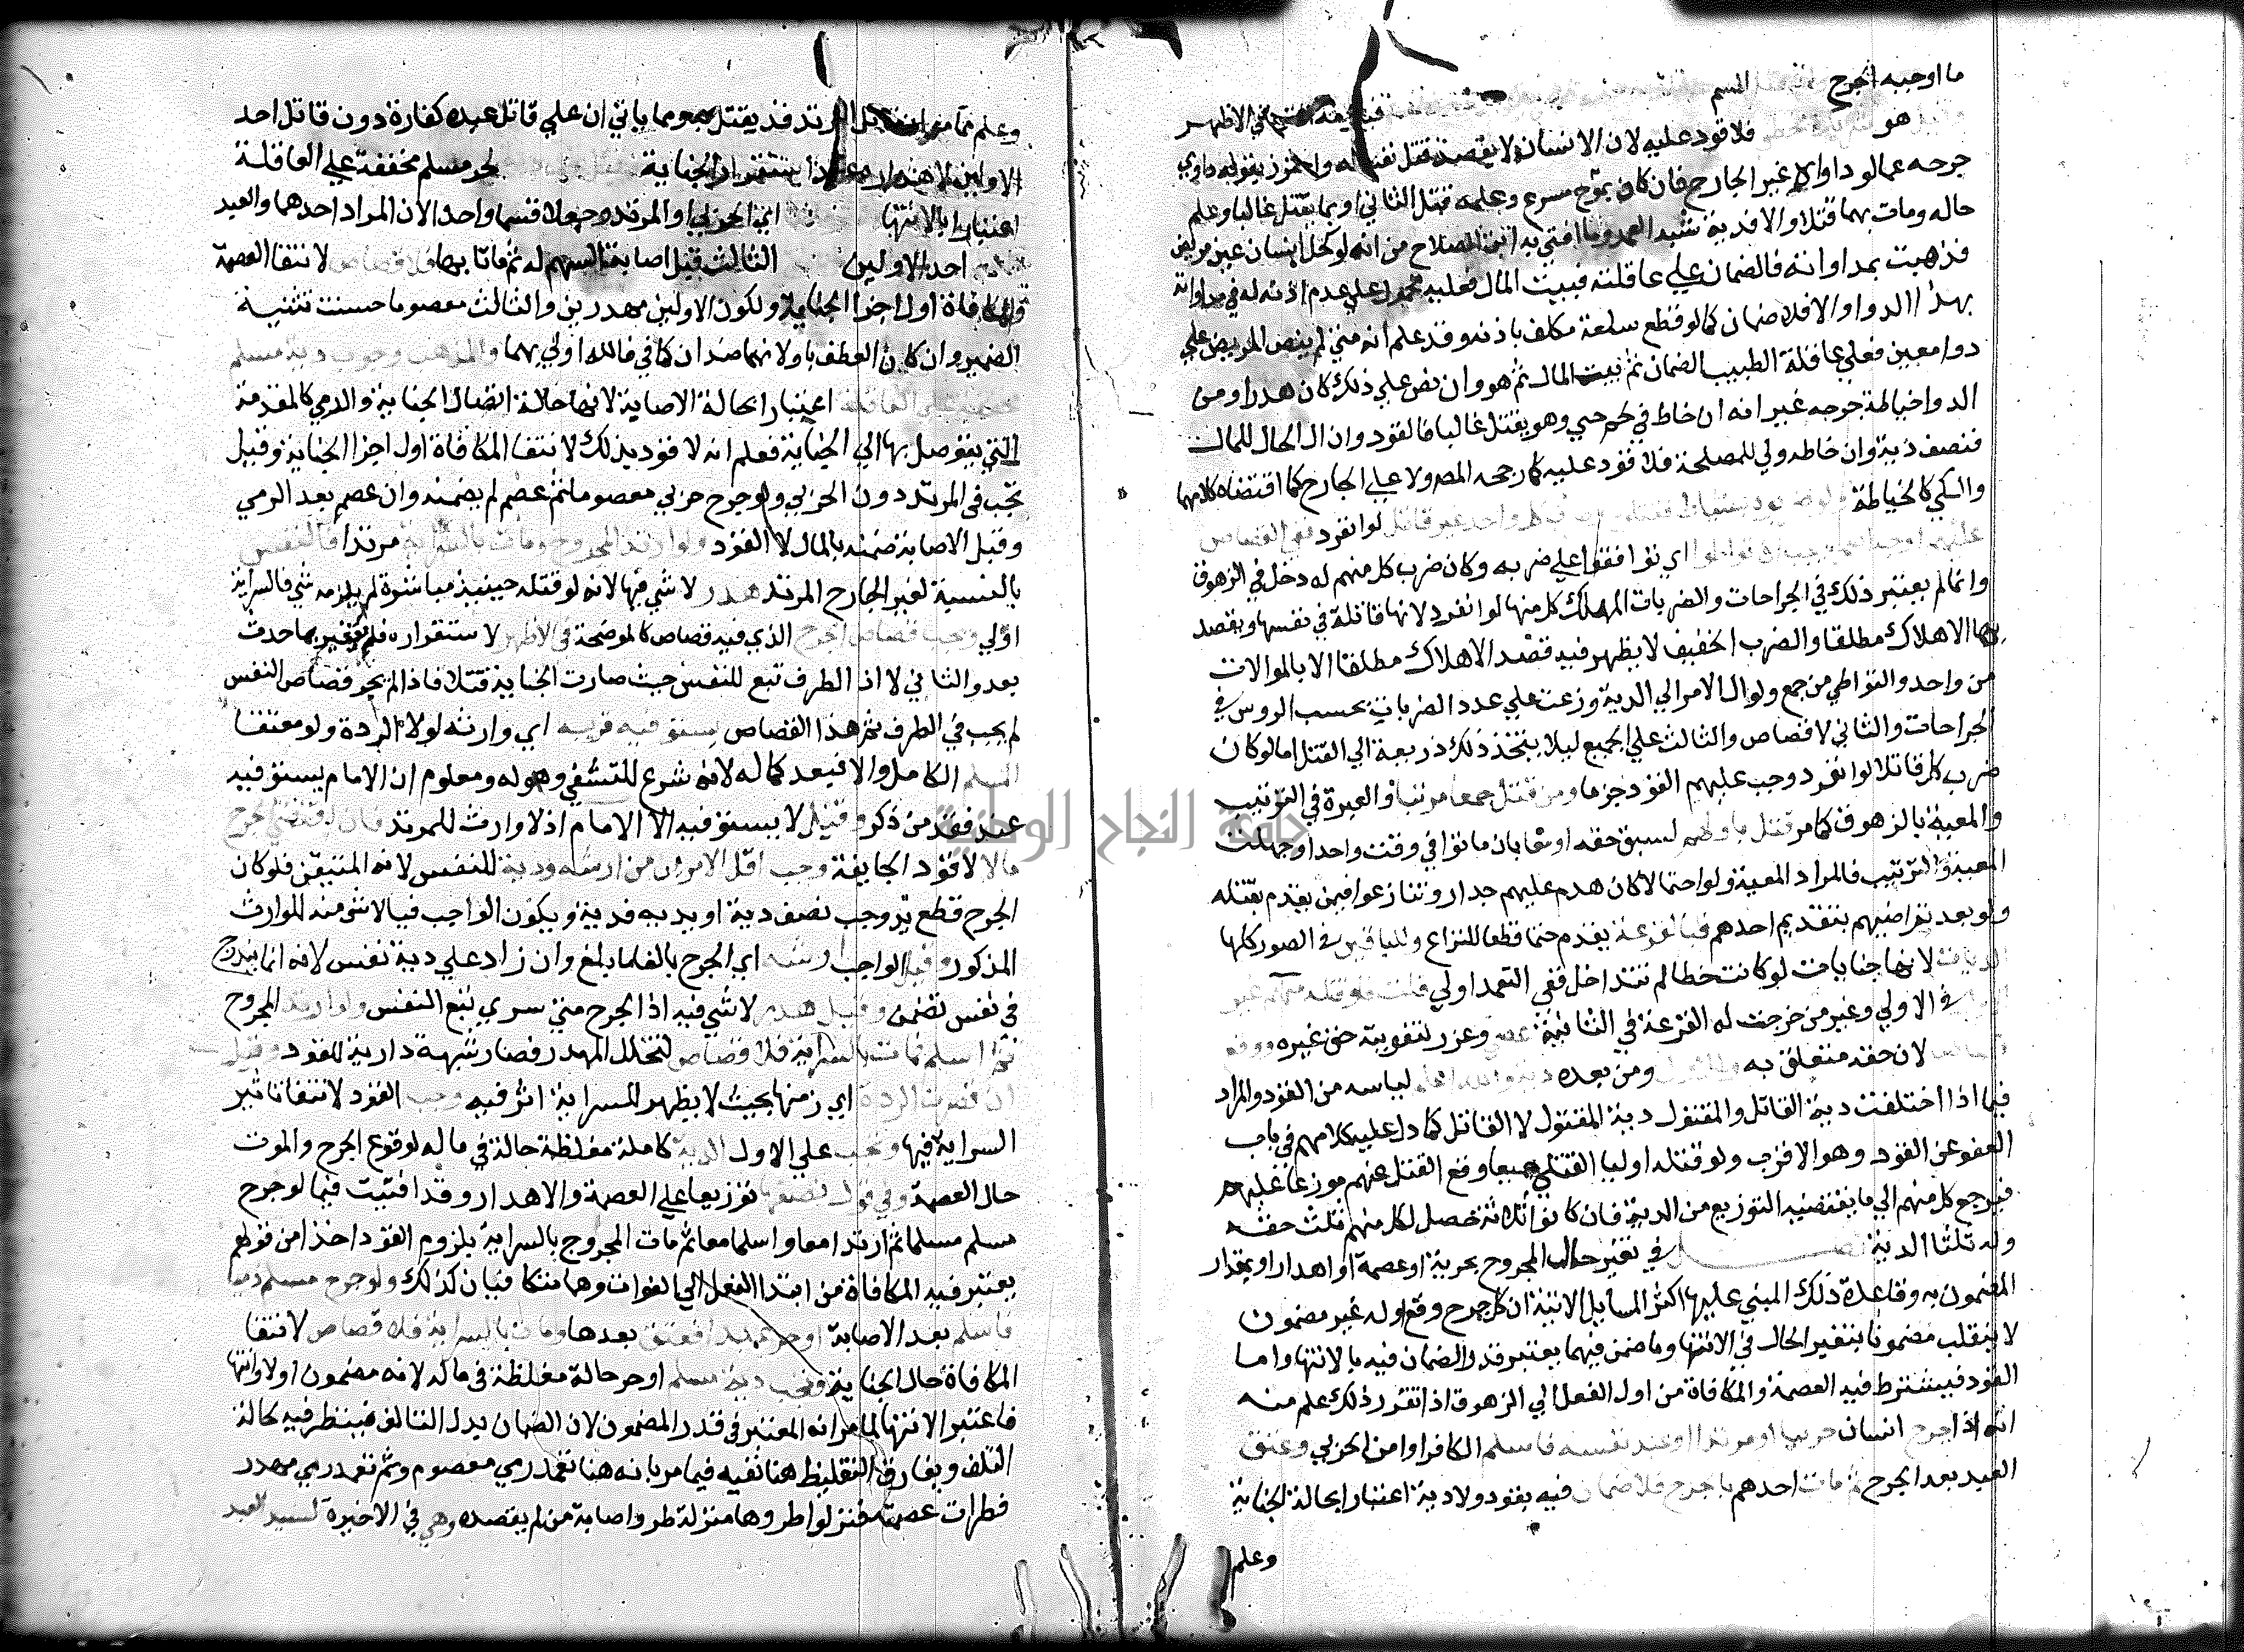 ما اوجبه الجرح
هو فلا قود عليه لان الانسان لا يقصد قتل نفسه في الاظهر
جرحه عمالو داواه غير الجارح فان كان بموح مسرع وعلمه قتل الثاني او بما يقتل غالبا وعلم
حاله ومات بهما قتلا والا فدية شبه العمد وما افتى به ابن الصلاح من انه لو كحل انسان عين مريض
فذهبت بمداواته فالضمان على عاقلته فبيت المال فعليه محمول على عدم اذنه له في مداواته
بهذا الدوا والا فلا ضمان كما لو قطع سلعة مكلف باذنه وقد علم انه متى لم ينص المريض على
دوا معين فعلى عاقلة الطبيب الضمان ثم بيت المال ثم هو وان نص على ذلك كان هدرا ومن
الدوا خياطة جرحه غير انه ان خاط في لحم حي وهو يقتل غالبا فالقود وان ال الحال للمال
فنصف دية وان خاطه ولي للمصلحة فلا قود عليه كما رجحه المص ولا على الجارح كما اقتضاه كلامهما
والكي كالخياطة
لو انفرد اي توافقوا على ضربه وكان ضرب كل منهم له دخل في الزهوق
وانما لم يعتبر ذلك في الجراحات والضربات المهلك كل منها لو انفرد لانها قاتلة في نفسها ويقصد
بها الاهلاك مطلقا والضرب الخفيف لا يظهر فيه قصد الاهلاك مطلقا الا بالموالات
من واحد والتواطي من جمع ولو ال الامر الى الدية وزعت على عدد الضربات بحسب الروس في
الجراحات والثاني لا قصاص والثالث على الجميع ليلا يتخذ ذلك ذريعة الى القتل اما لو كان
ضرب كل قاتلا لو انفرد وجب عليهم القود جزما ومن قتل جمعا مرتبا والعبرة في الترتيب
والمعية بالزهوق كما مر قتل باولهم لسبق حقه او معا بان ماتوا في وقت واحد او جهلت
المعية والترتيب فالمراد المعية ولو احتمالا كان هدم عليهم جدار وتنازعوا فيمن يقدم بقتله
ولو بعد تراضيهم بتقديم احدهم فبالقرعة يقدم حتما قطعا للنزاع وللباقين في الصور كلها
الديات لانها جنايات لو كانت خطا لم تتداخل ففي التعمد اولى قلت فلو قتله منهم غير
الاول في الاولى وغير من خرجت له القرعة في الثانية عصى وعزر لتفويته حق غيره ووقع
قصاصا لان حقه متعلق به وللاول ومن بعده دية والله اعلم لياسه من القود والمراد
فيما اذا اختلفت دية القاتل والمقتول دية المقتول لا القاتل كما دل عليه كلامهم في باب
العفو عن القود وهو الاقرب ولو قتله اوليا القتلى جميعا وقع القتل عنهم موزعا عليهم
فيرجع كل منهم الى ما يقتضيه التوزيع من الدية فان كانوا ثلاثة حصل لكل منهم ثلث حقه
وله ثلثا الدية فصل في تغير حال المجروح بحرية او عصمة او اهدار او بمقدار
المضمون به وقاعدة ذلك المبني عليها اكثر المسايل الاتية ان كل جرح وقع اوله غير مضمون
لا ينقلب مضمونا بتغير الحال في الانتها وما ضمن فيهما يعتبر قدر الضمان فيه بالانتها واما
القود فيشترط فيه العصمة والمكافاة من اول الفعل الى الزهوق اذا تقرر ذلك علم منه
انه اذا جرح انسان حربيا او مرتدا او عبد نفسه فاسلم الكافر او امن الحربي وعتق
العبد بعد الجرح ثم مات احدهم بالجرح فلا ضمان فيه بقود ولا دية اعتبارا بحالة الجناية
وعلم
وعلم مما مر ان قاتل المرتد قد يقتل به ومما ياتي ان على قاتل عبده كفارة دون قاتل احد
الاولين لحر مسلم مخففة على العاقلة
اعتبارا بالانتها اي الحربي او المرتد وجعلا قسما واحدا لان المراد احدهما والعبد
احد الاولين الثالث قبل اصابة السهم له ثم ماتا بها فلا قصاص لانتفا العصمة
والمكافاة اول اجزا الجناية ولكون الاولين مهدرين والثالث معصوما حسنت تثنية
الضمير وان كان العطف باو لانهما ضدان كما في فالله اولى بهما والمذهب وجوب دية مسلم
مخففة على العاقلة اعتبارا بحالة الاصابة لانها حالة اتصال الجناية والرمي كالمقدمة
التي يتوصل بها الى الجناية فعلم انه لا قود بذلك لانتفا المكافاة اول اجزا الجناية وقيل
تجب في المرتد دون الحربي ولو جرح حربي معصوما ثم عصم لم يضمنه وان عصم بعد الرمي
وقبل الاصابة ضمنه بالمال لا القود ولو ارتد المجروح ومات بالسراية مرتدا فالنفس
بالنسبة لغير الجارح المرتد هدر لا شي فيها لانه لو قتله حينيذ مباشرة لم يلزمه شي فالسراية
اولى ويجب قصاص الجرح الذي فيه قصاص كالموضحة في الاظهر لاستقراره فلم يتغير بما حدث
بعد والثاني لا اذ الطرف تبع للنفس حيث صارت الجناية قتلا فاذا لم يجر قصاص النفس
لم يجب في الطرف ثم هذا القصاص يستوفيه قريبه اي وارثه لولا الردة ولو معتقا
المسلم الكامل والا فبعد كماله لانه شرع للتشفي وهو له ومعلوم ان الامام يستوفيه
عند فقد من ذكر وقيل لا يستوفيه الا الامام اذ لا وارث للمرتد فان اقتضى الجرح
مالا لا قود الجايفة وجب اقل الامرين من ارشه ودية للنفس لانه المتيقن فلو كان
الجرح قطع يد وجب نصف دية او يديه فدية ويكون الواجب فيا لا شي منه للوارث
المذكور وقيل الواجب ارشه اي الجرح بالغا ما بلغ وان زاد على دية نفس لانه انما يندرج
في نفس تضمن وقيل هدر لا شي فيه اذ الجرح متى سرى تبع النفس ولو ارتد المجروح
ثم اسلم فمات بالسراية فلا قصاص لتخلل المهدر فصار شبهة دارية للقود وقيل
ان قصرت الردة اي زمنها بحيث لا يظهر للسراية اثر فيه وجب القود لانتفا تاثير
السراية فيها وتجب على الاول الدية كاملة مغلظة حالة في ماله لوقوع الجرح والموت
حال العصمة وفي قول نصفها توزيعا على العصمة والاهدار وقد افتيت فيما لو جرح
مسلم مسلما ثم ارتدا معا واسلما معا ثم مات المجروح بالسراية بلزوم القود اخذا من قولهم
يعتبر فيه المكافاة من ابتدا الفعل الى الفوات وهما متكافيان كذلك ولو جرح مسلم ذميا
فاسلم بعد الاصابة او حر عبدا فعتق بعدها ومات بالسراية فلا قصاص لانتفا
المكافاة حال الجناية وتجب دية مسلم او حر حالة مغلظة في ماله لانه مضمون اولا وانتها
فاعتبر الانتها لما مر انه المعتبر في قدر المضمون لان الضمان بدل التالف فينظر فيه لحالة
التلف ويفارق التغليظ هنا نفيه فيما مر بانه هنا تعمد رمي معصوم وثم تعمد رمي مهدر
فطرات عصمته فنزلوا طروها منزلة طرو اصابة من لم يقصده وهي في الاخيرة لسيد العبد